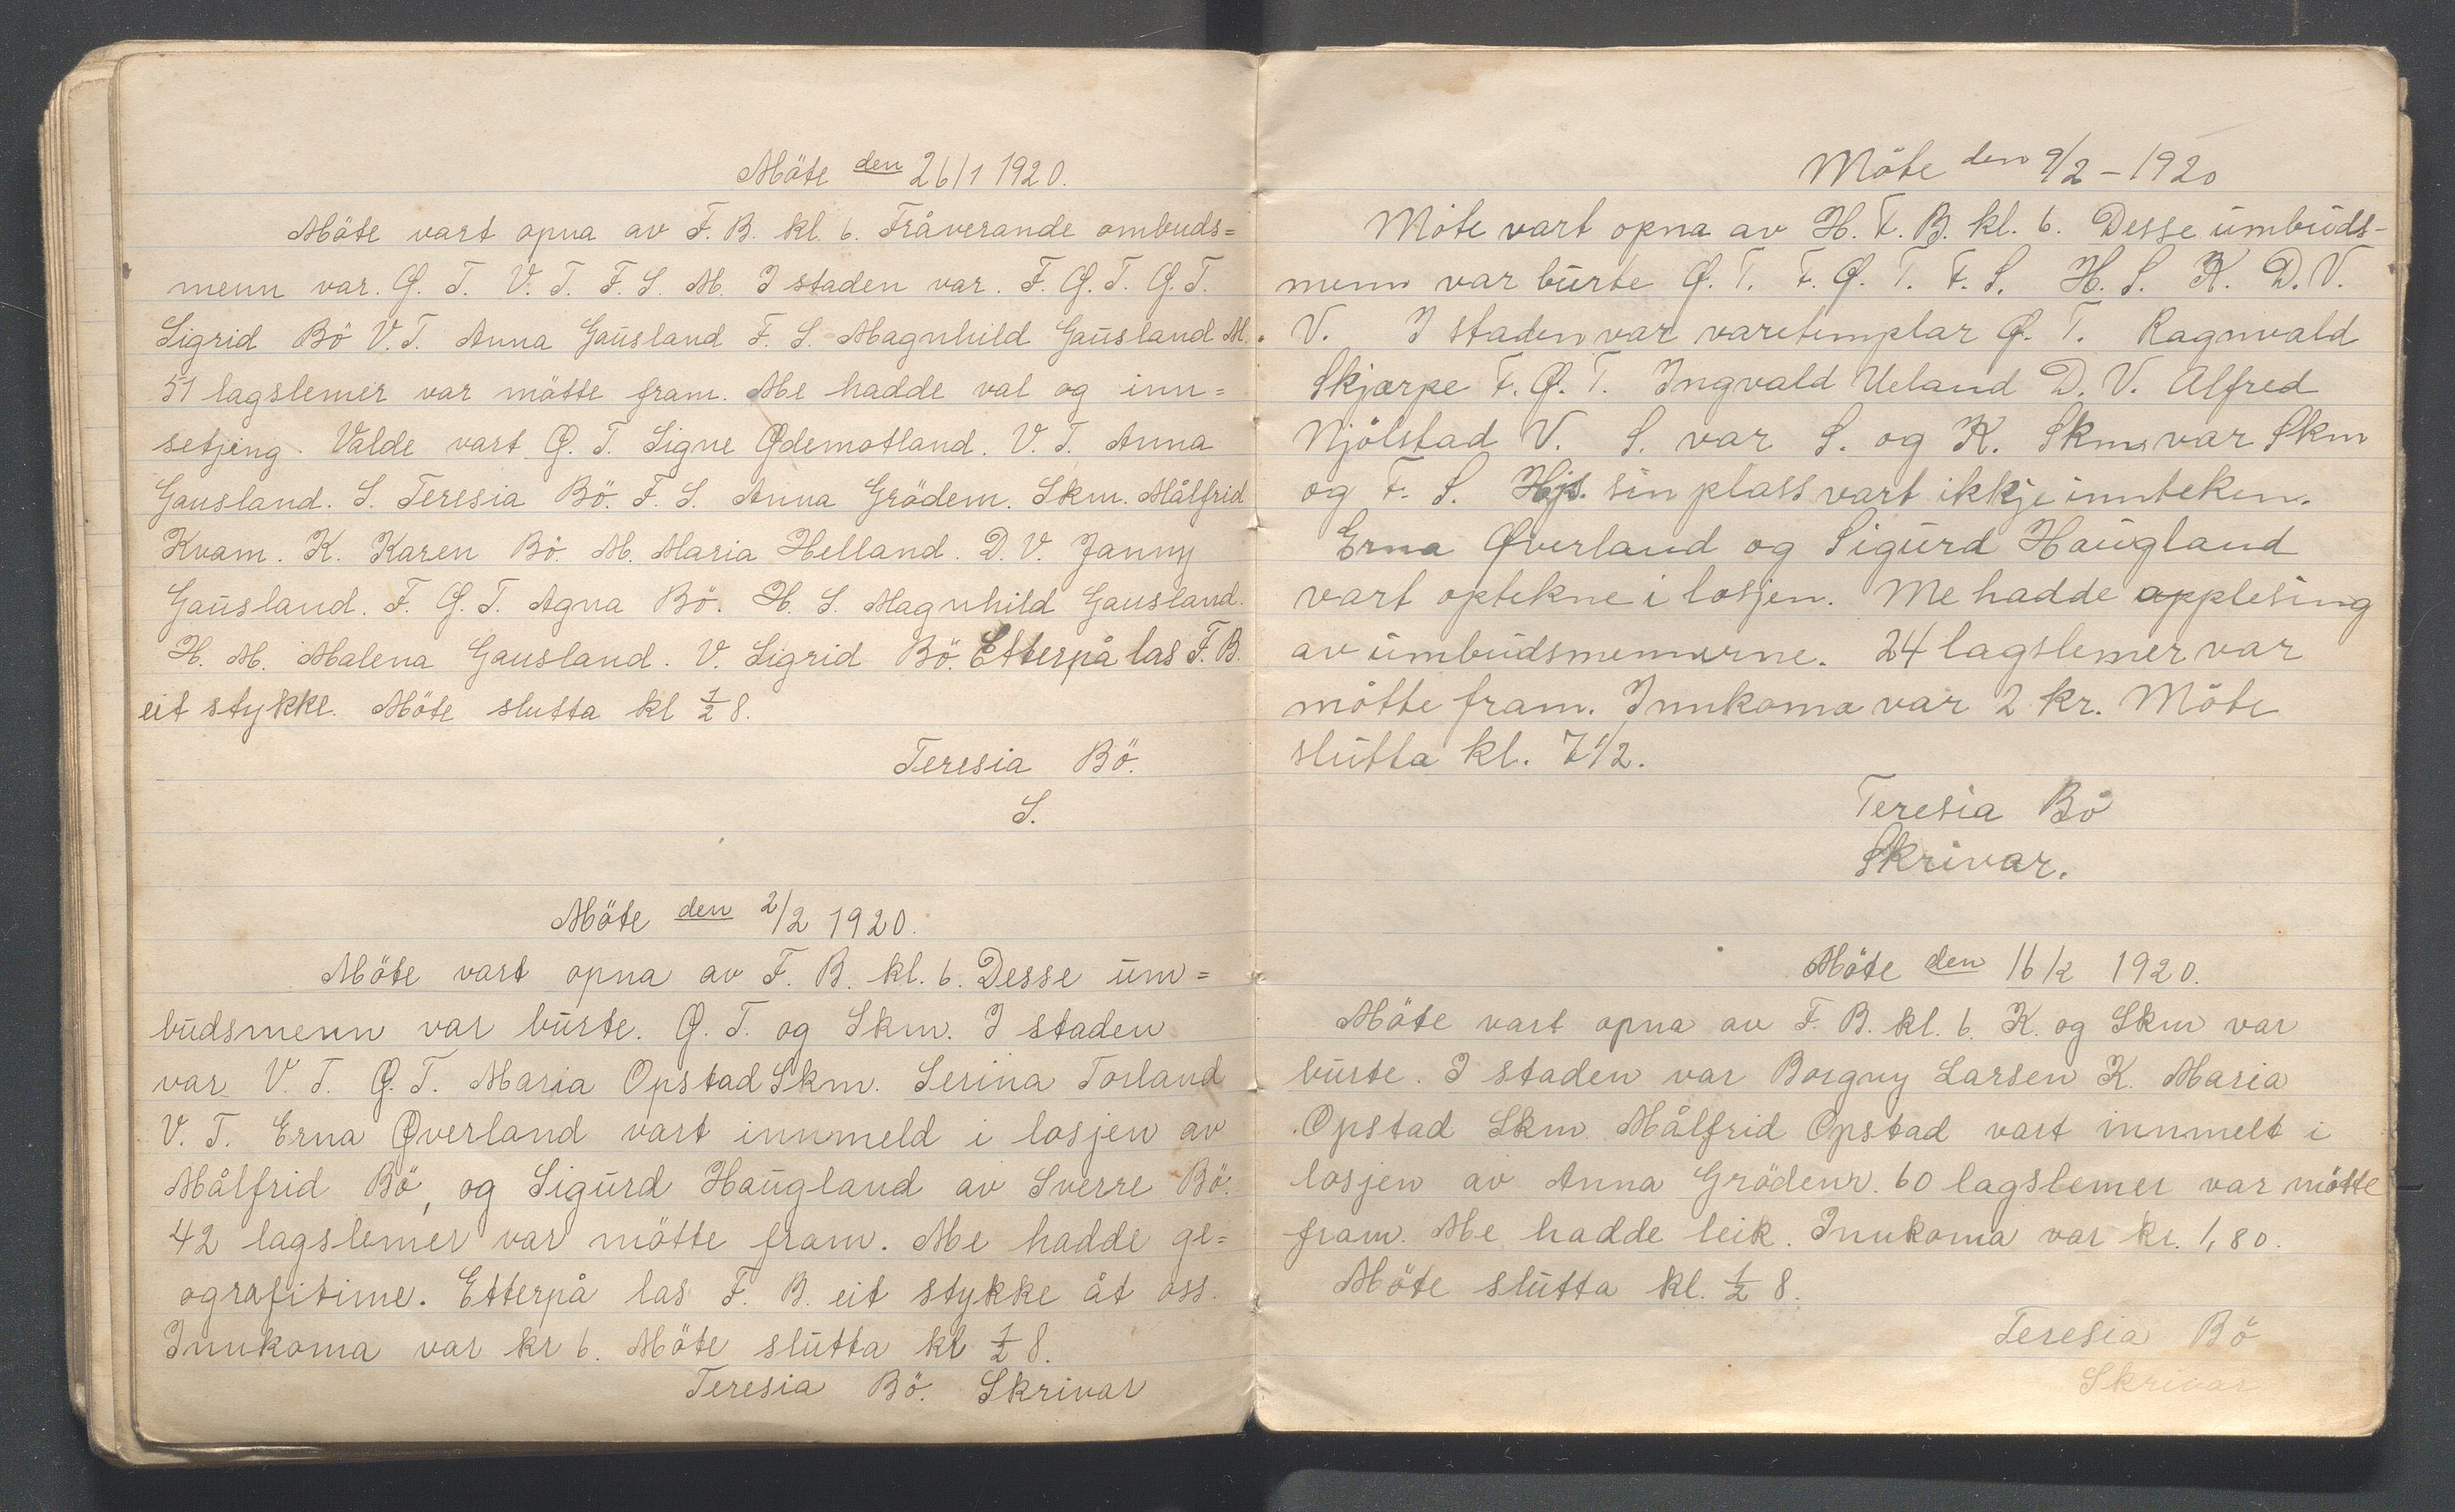 Möte den 26/1 1920.
Möte vart opna av F. B. kl. 6. Fråverande ombuds=
menn var. Ø. T. V. T. F. S. M. I staden var. F. Ø. T. Ø. T.
Sigrid Bö V. T. Anna Gaùsland F. S. Magnhild Gaùsland M.
51 lagslemer var mötte fram. Me hadde val og inn=
setjing. Valde vart Ø. T. Signe Ødemotland. V. T. Anna
Gausland. S. Teresia Bö. F. S. Anna Grödem. Skm. Målfrid
Kvam. K. Karen Bö. M. Maria Helland. D. V. Janny
Gaùsland. F. Ø. T. Agna Bö. H. S. Magnhild Gausland.
H. M. Malena Gausland. V. Sigrid Bö. Etterpå las F. B.
eit stykke. Möte slutta kl ½ 8.
Teresia Bö.
S.
Möte den 2/2 1920.
Möte vart opna av F. B. kl. 6. Desse ùm=
bùdsmenn var bùrte. Ø. T. og Skm. I staden
var V. T. Ø. T. Maria Opstad Skm. Serina Torland
V. T. Erna Øverland vart innmeld i losjen av
Målfrid Bö, og Sigùrd Haùgland av Sverre Bö.
42 lagslemer var mötte fram. Me hadde ge=
ografitime. Etterpå las F. B. eit stykke åt oss.
Innkoma var kr 6. Möte slùtta kl ½ 8.
Teresia Bö. Skrivar
Möte den 9/2 – 1920
Möte vart opna av H. F. B. kl. 6. Desse ùmbùds-
menn var bùrte Ø. T. F. Ø. T. F. S. H. S. K. D. V.
V. I staden var varetemplar Ø. T. Ragnvald
Skjærpe F. Ø. T. Ingvald Ueland D. V. Alfred
Njölstad V. S. var S. og K. Skm var Skm
og F. S. Hjs. sin plass vart ikkje innteken.
Erna Øverland og Sigùrd Haùgland
vart optekne i losjen. Me hadde applesing
av ùmbùdsmennerne. 24 lagslemer var
mötte fram. Innkoma var 2 kr. Möte
slùtta kl. 7 1/2.
Teresia Bö
Skrivar.
Möte den 16/2 1920.
Möte vart opna av F. B. kl. 6. K. og Skm var
bùrte. I staden var Borgny Larsen K. Maria
Opstad Skm. Målfrid Opstad vart innmelt i
losjen av Anna Grödem. 60 lagslemer var mötte
fram. Me hadde leik. Innkoma var kr. 1,80.
Möte slùtta kl. ½ 8.
Teresia Bö
Skrivar